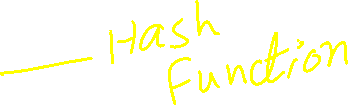 Hash
Function